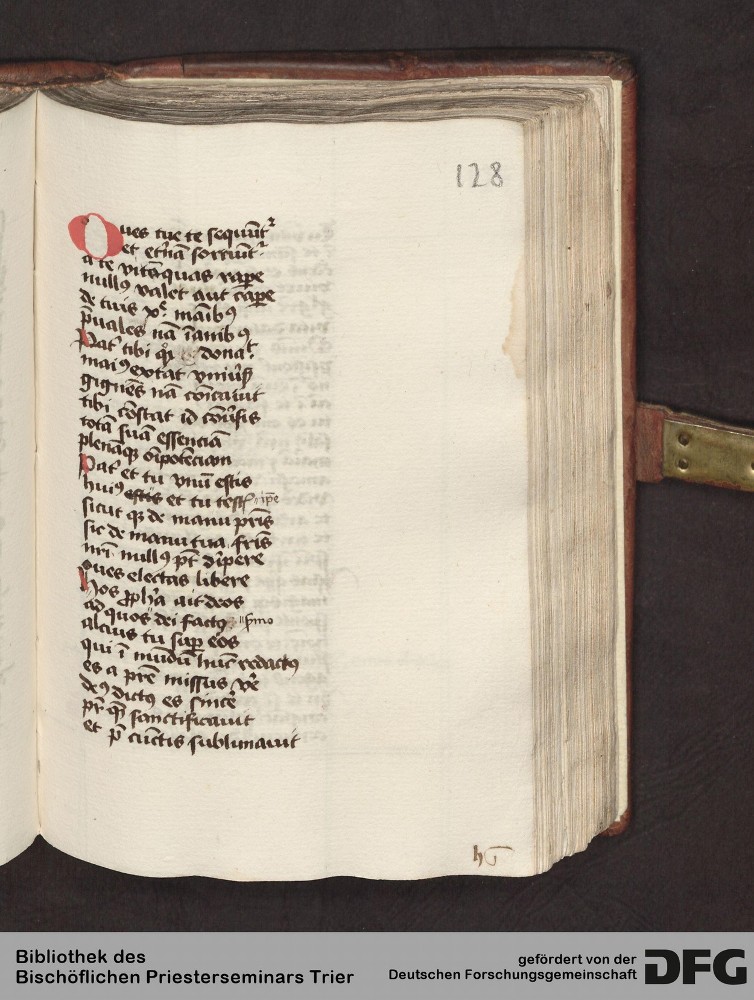 128
Oues tue te sequūt
et et̄nā sortiūt
a te vitā quas rape
null⁹ valet aut cape
de tuis xp̄e māib⁹
puales nā īanib⁹
Pat̄ tibi donat
mai⁹ extat
gignēs nā cōīcauit
tibi cōstat id
totā suā essenciā
plenāqꝫ oīpotēciam
Pat̄ et tu vnū estis
hui⁹ estis et tu test ip̄e
sicut qꝫ de manu p̄ris
sic de manu tua fr̄is
nr̄i null⁹ pt̄ dīpere
oues electas libere
Hos ꝓph̄a ait deos
ad quos dei fact⁹ s̄mo
alcius tu sup eos
qui ī mūdū hūc redact⁹
es a pr̄e missus v̄e
de⁹ dict⁹ es sincē
pr̄ sanctificauit
et p̄ cūctis sublimauit
h
Bibliothek des
Bischöflichen Priesterseminars Trier
gefördert von der
Deutschen Forschungsgemeinschaft
DFG